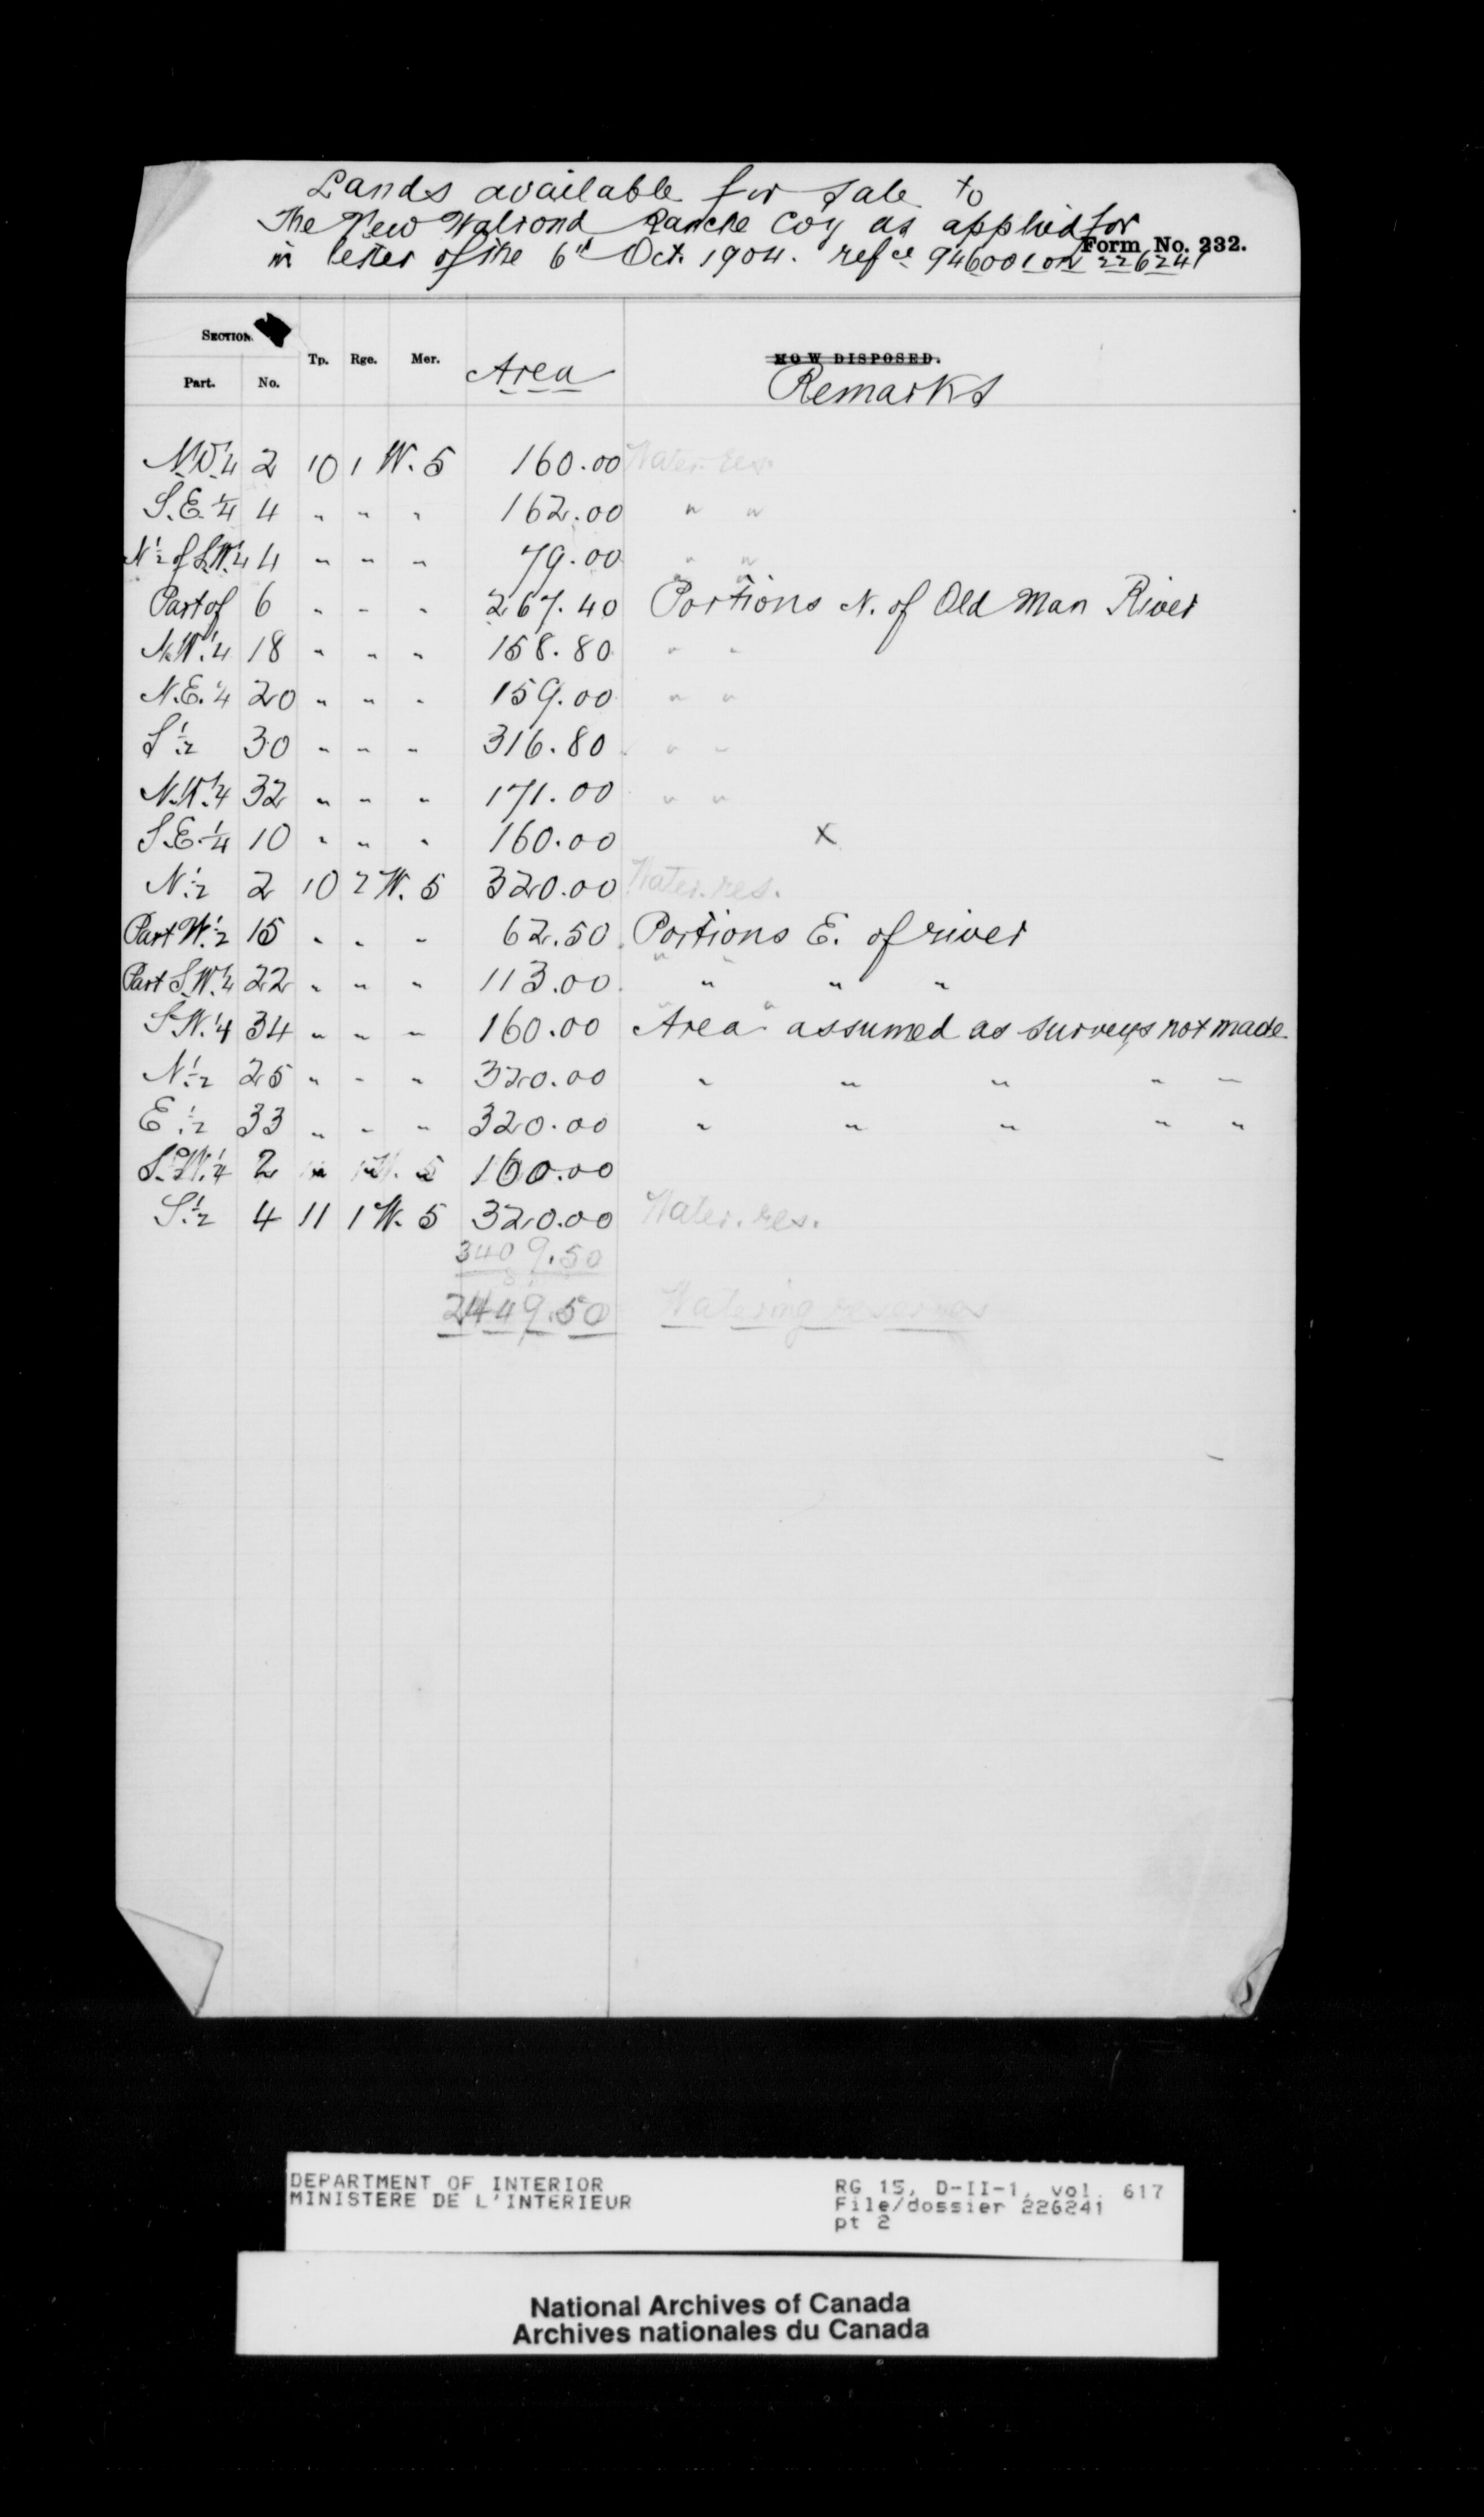 Lands available for sale to
The New Walrond Ranche Coy as applied for
in letter of the 6th Oct. 1904. refce 946001 on 226241
Form No. 232.
SECTION.
Part. No. Tp. Rge. Mer. Area HOW DISPOSED.
Remarks
N.W.¼ 2 10 1 W. 5 160.00 Water. res.
S.E.¼ 4 " " " 162.00 " "
N.½ of S.W.¼ 4 " " " 79.00 " "
Part of 6 " " " 267.40 Portions N. of Old Man River
N.W.¼ 18 " " " 158.80 " "
N.E.¼ 20 " " " 159.00 " "
S.½ 30 " " " 316.80 " "
N.W.¼ 32 " " " 171.00 " "
S.E.¼ 10 " " " 160.00 X
N.½ 2 10 2 W. 5 320.00 Water. res.
Part W.½ 15 " " " 62.50 Portions E. of river
Part S.W.¼ 22 " " " 113.00 " " "
S.W.¼ 34 " " " 160.00 Area assumed as surveys not made
N.½ 25 " " " 320.00 " " " " "
E.½ 33 " " " 320.00 " " " " "
S.W.¼ 2 " " " 160.00
S.½ 4 11 1 W. 5 320.00 Water. res.
3409.50
2449.50 Watering reserves
DEPARTMENT OF INTERIOR
MINISTERE DE L'INTERIEUR
RG 15, D-II-1, vol. 617
File/dossier 226241
pt 2
National Archives of Canada
Archives nationales du Canada